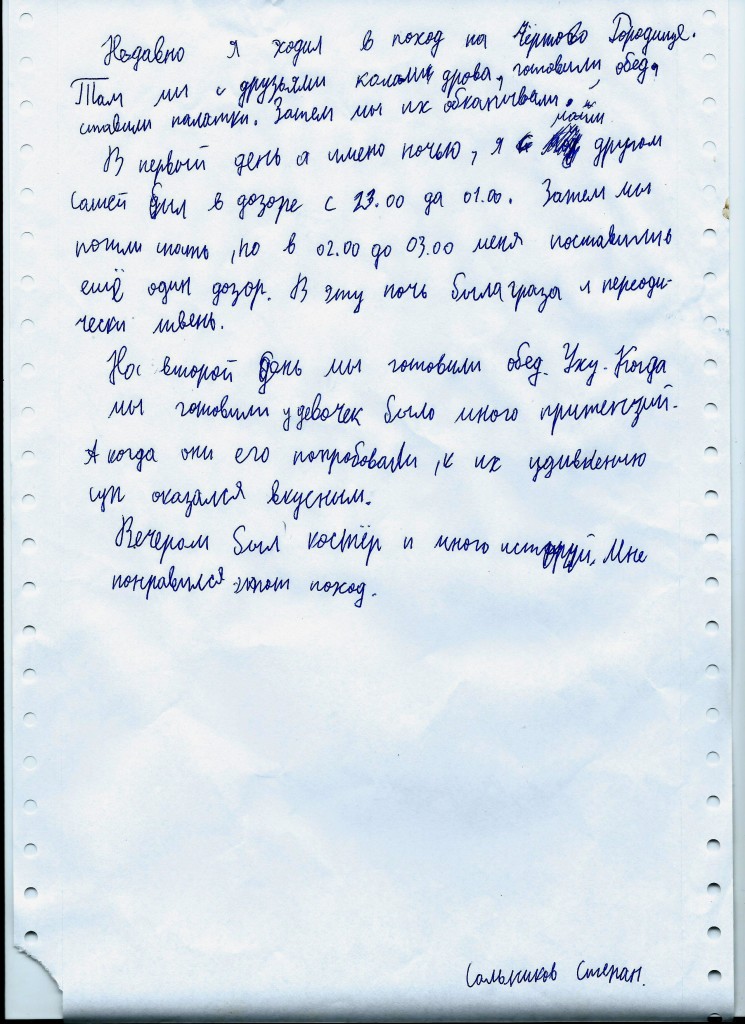 Недавно я ходил в поход на Чёртово Городище.
Там мы с друзьями калами дрова, готовили обед,
ставили палатки. Затем мы их обкапывали.
В первый день а имено ночью, я с моим другом
Сашей был в дозоре с 23.00 да 01.00. Затем мы
пошли спать, но в 02.00 до 03.00 меня поставили в
ещё один дозор. В эту ночь была граза и переоди-
чески ливень.
На второй день мы готовили обед. Уху. Когда
мы готовили у девочек было много притензий.
А когда они его попробовали, к их удивлению
суп оказался вкусным.
Вечером был костёр и много историй. Мне
понравился этот поход.
Сальников Степан.